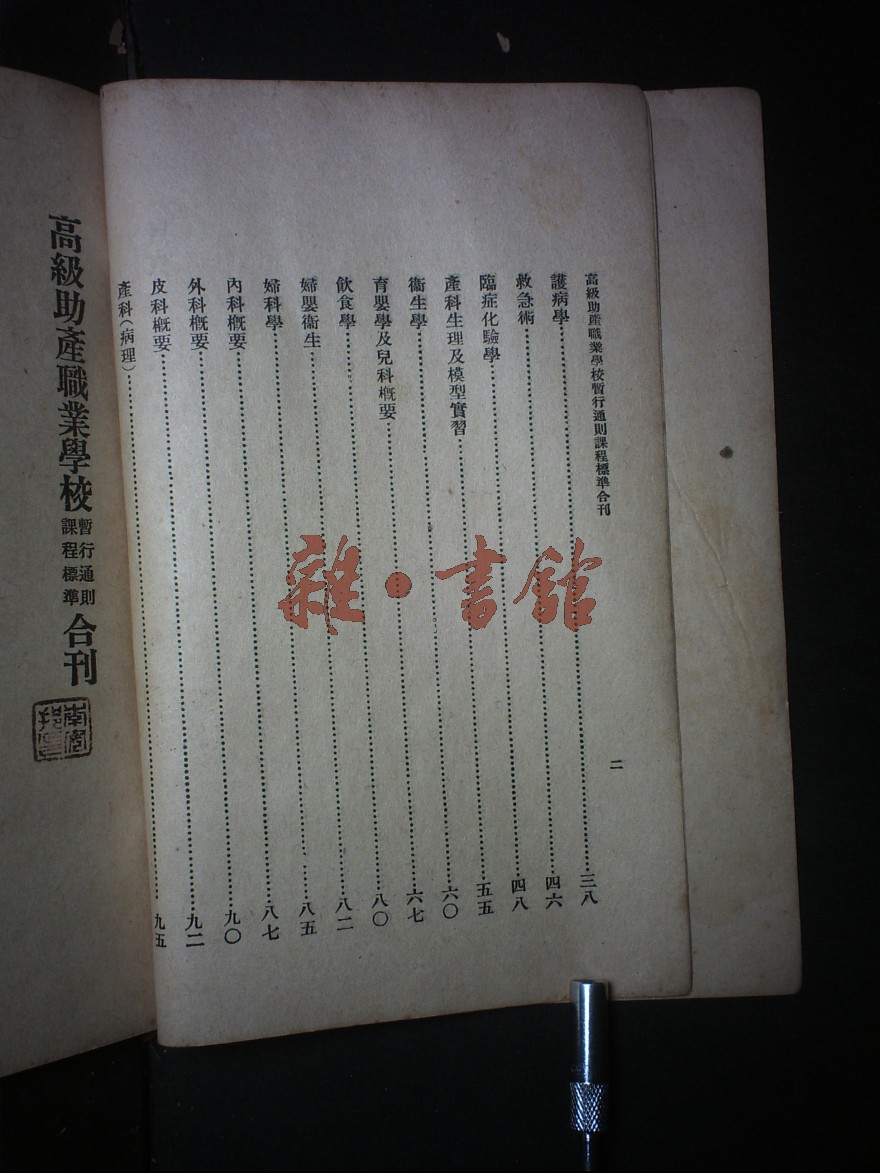 高級助產職業學校暫行通則課程標準合刊
二
護病學……三八
救急術……四六
臨症化驗學……四八
產科生理及模型實習……五五
衞生學……六〇
育嬰學及兒科概要……六七
飲食學……八〇
婦嬰衞生……八二
婦科學……八五
內科概要……八七
外科概要……九〇
皮科概要……九二
產科(病理)……九五
高級助產職業學校暫行通則課程標準合刊
雜·書館